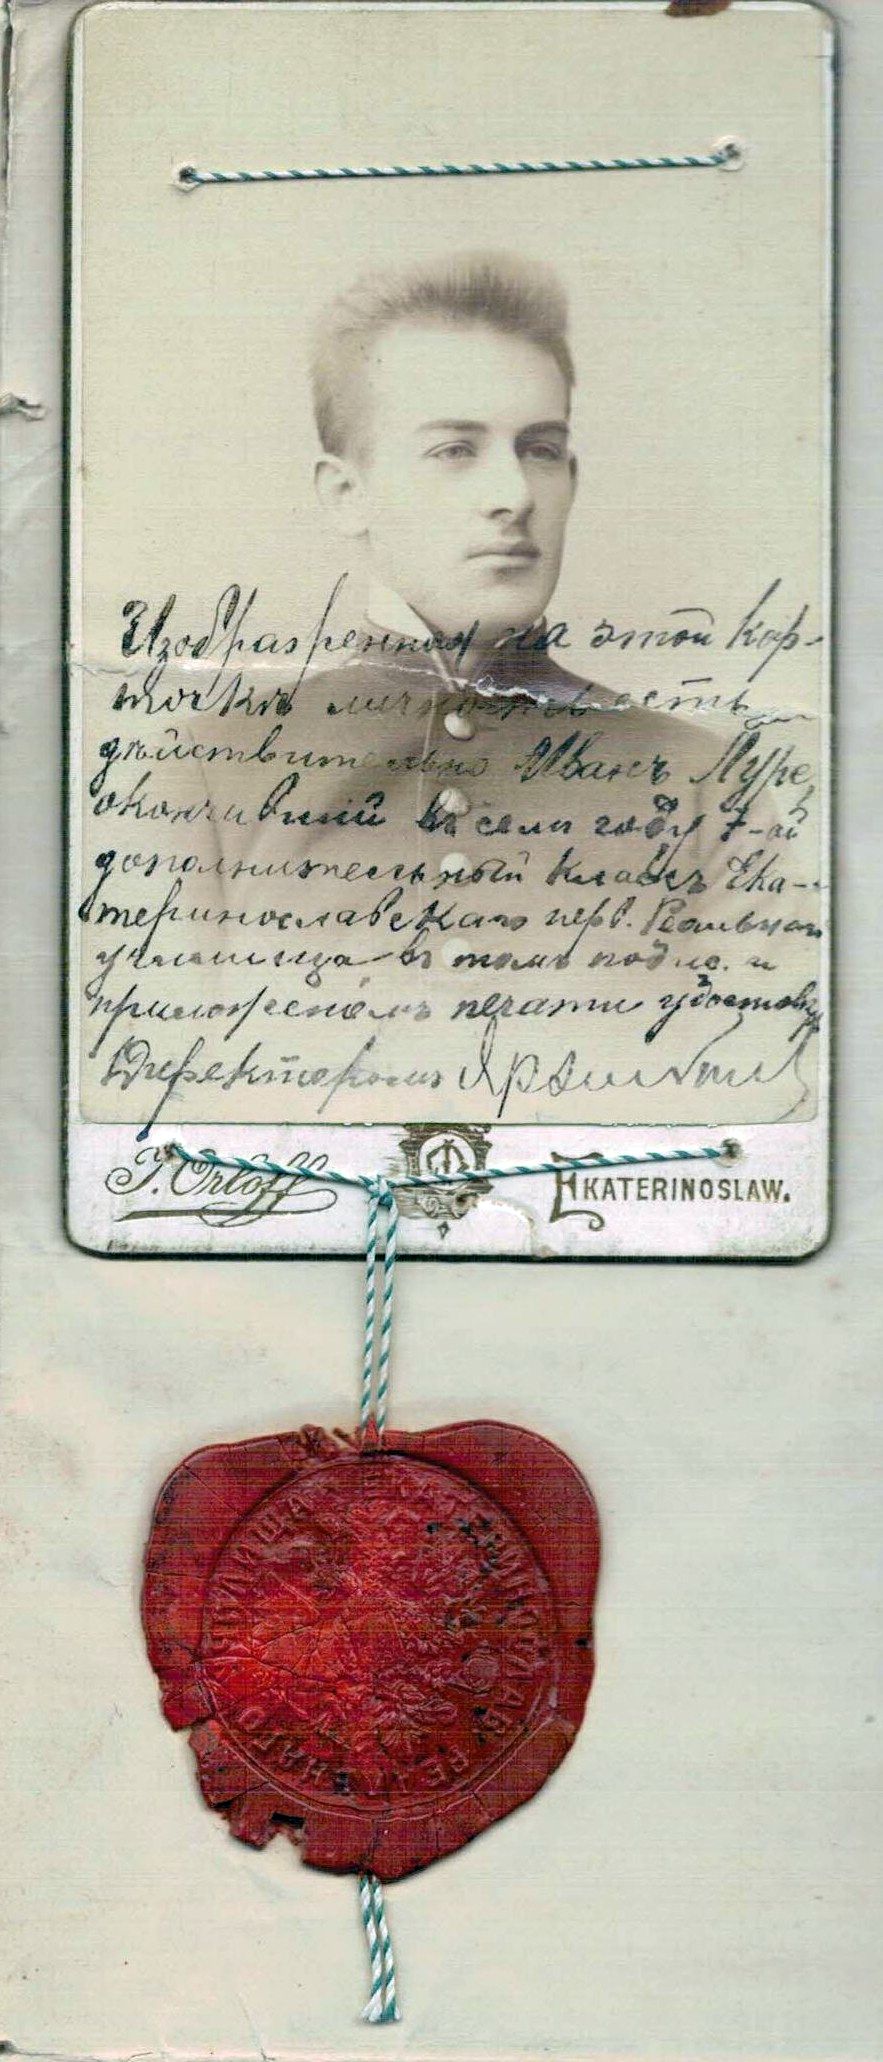 Изображенная на этой кар-
точкѣ личность есть
дѣйствительно Иванъ
окончившій въ семъ году 7-ой
дополнительный классъ Ека-
теринославскаго перв. Реальнаго
училища въ томъ подпис. и
приложеніемъ печати удостовѣр
Директоромъ
J. Orloff EKATERINOSLAW.
ЕКАТЕРИНОСЛАВ. РЕАЛЬНАГО УЧИЛИЩА